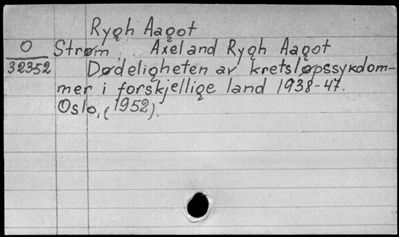 Rygh Aagot
O Strøm . Axel and Rygh Aagot
32352 Dødeligheten av kretsløpssykdom-
mer i forskjellige land 1938-47.
Oslo, (1952).